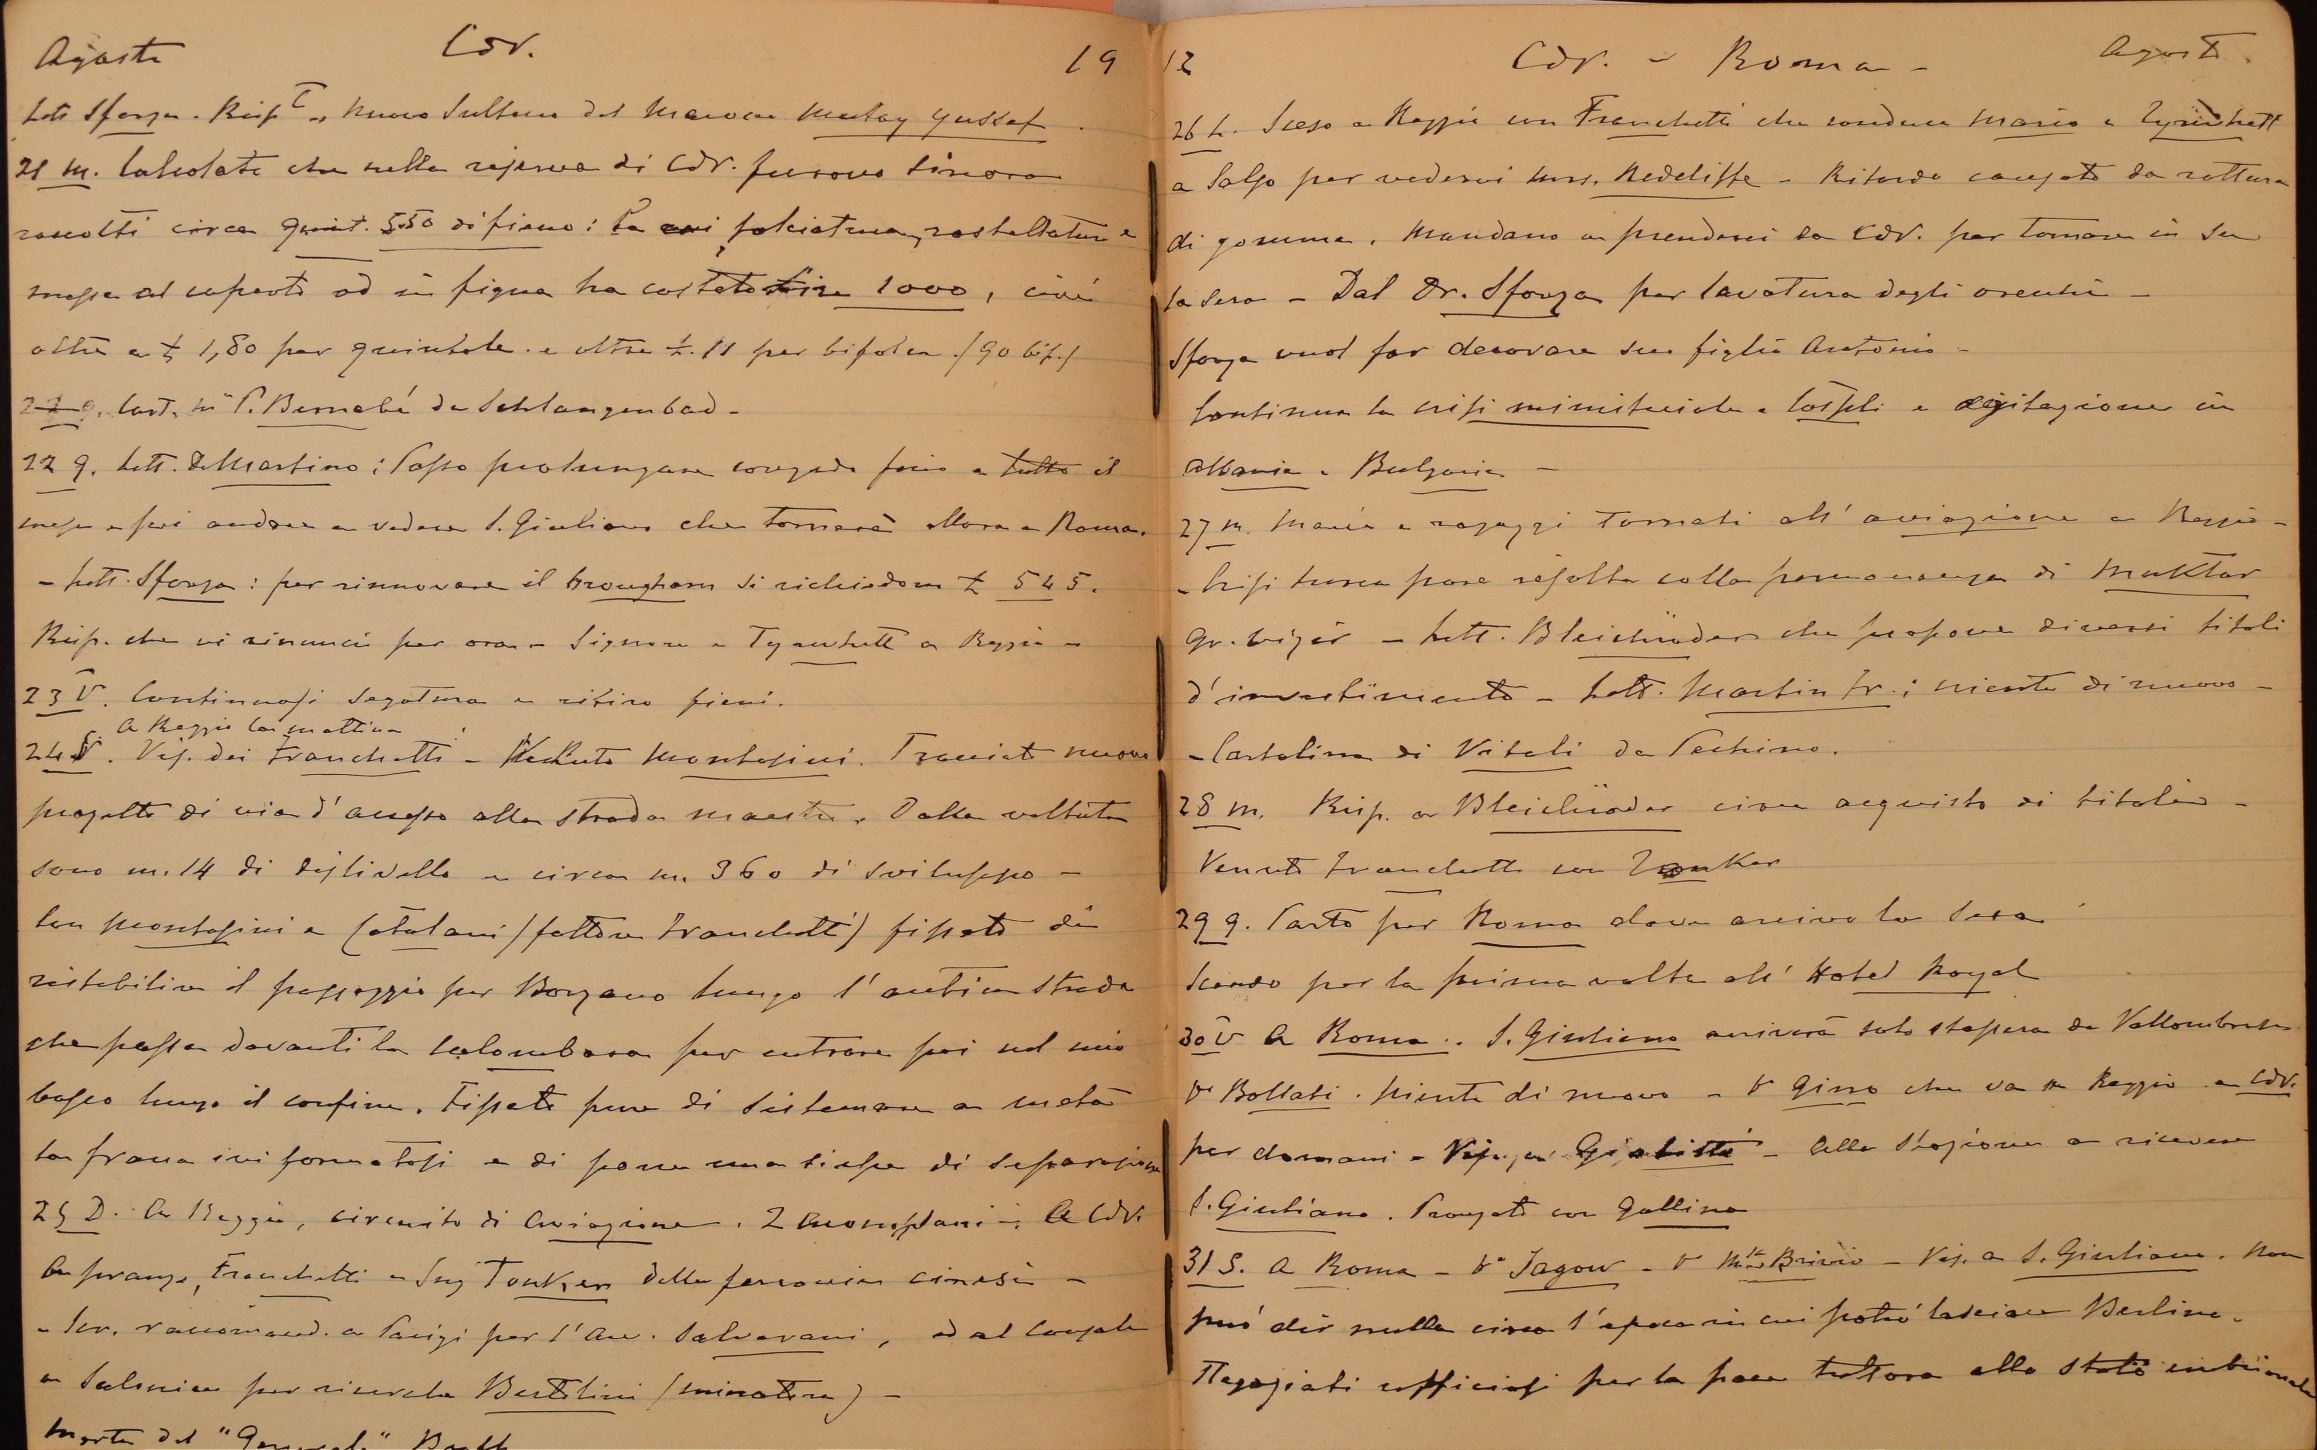 Agosto Cdv. 19
Lett. Sforza. Risp. Nuovo Sultano del Marocco Mulay Yussef.
21 M. Calcolato che nella riserva di Cdv. furono sinora
raccolti circa quint. 550 di fieno: la cui falciatura, rastellatura e
messa al coperto od in figna ha costato Lire 1000, cioè
oltre a £ 1,80 per quintale e oltre £. 11 per bifolca (90 bif.)
22 g. Cart. ill. P. Bernabé da Schlangenbad -
22 g. Lett. De Martino: Posso prolungare congedo fino a tutto il
mese e poi andare a vedere S. Giuliano che tornerà allora a Roma.
- Lett. Sforza: per rinnovare il brougham si richiedono £ 545.
Risp. che vi rinuncio per ora - Signore e Tyrwhitt a Reggio -
23 V. Continuasi segatura e ritiro fieni.
A Reggio la mattina
24 S. Vis. dei Franchetti - Venuto Montasini. Tracciato nuovo
progetto di via d'accesso alla strada maestra. Dalla voltata
sono m. 14 di dislivello e circa m. 360 di sviluppo -
Con Montasini e Catalani (fattore Franchetti) fissato di
ristabilire il passaggio per Borzano lungo l'antica strada
che passa davanti la Colombara per entrare poi nel mio
bosco lungo il confine. Fissato pure di sistemare a metà
la frana ivi formatasi e di porre una siepe di separazione
25 D. A Reggio, circuito di aviazione. 2 monoplani - A Cdv.
a pranzo, Franchetti e Ing Tonker della ferrovia cinese -
- Scr. raccomand. a Parigi per l'Avv. Salvarani, ed al Console
a Salonicco per ricerche Bertolini (minatore) -
Morte del "Generale" Booth
12 Cdv. - Roma - Agosto
26 L. Sceso a Reggio con Franchetti che conduce Maria e Tyrwhitt
a Salso per vedervi Mrs. Redcliffe - Ritardo causato da rottura
di gomma. Mandano a prenderci da Cdv. per tornare in su
la sera - Dal Dr. Sforza per lavatura degli orecchi -
Sforza vuol far decorare suo figlio Antonio -
Continua la crisi ministeriale a Cospoli e agitazione in
Albania e Bulgaria -
27 M. Maria e ragazzi tornati all'aviazione a Reggio -
- Crisi turca pare risolta colla permanenza di Muktar
Gr. Vizir - Lett. Bleichröder che propone diversi titoli
d'investimento - Lett. Martin Fr.: niente di nuovo -
- Cartolina di Vitali da Pechino.
28 M. Risp. a Bleichröder circa acquisto di titoli -
Venuto Franchetti con Tonker
29 g. Parto per Roma dove arrivo la sera
Scendo per la prima volta all'Hotel Royal
30 V A Roma. S. Giuliano arriverà solo stasera da Vallombrosa
V° Bollati. Niente di nuovo - V° Gino che va a Reggio e Cdv.
per domani - Vis. Giolitti - Alla stazione a ricevere
S. Giuliano. Pranzato con Gallina
31 S. A Roma - V° Jagow - V° Mse Brivio - Vis. a S. Giuliano. Non
può dir nulla circa l'epoca in cui potrò lasciare Berlino.
Negoziati ufficiosi per la pace tuttora allo stato embrionale